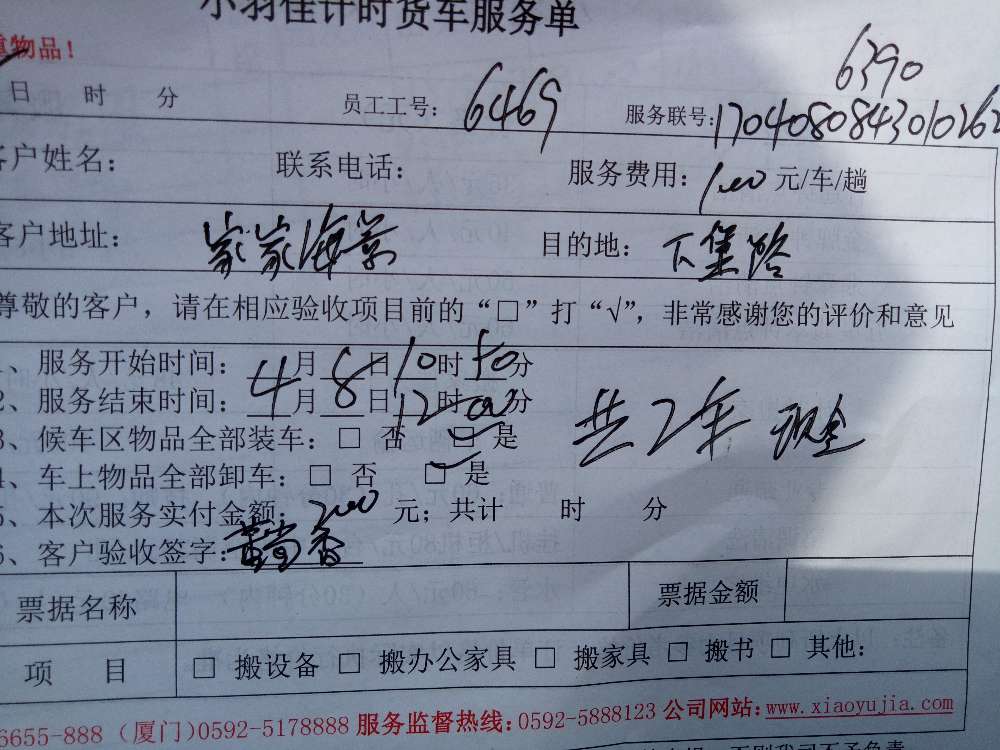 小羽佳计时货车服务单
重物品！
6390
日 时 分 员工工号：6469 服务联号：170408084301026
客户姓名： 联系电话： 服务费用：100 元/车/趟
客户地址：家家海景 目的地：下堡路
尊敬的客户，请在相应验收项目前的“□”打“√”，非常感谢您的评价和意见
1、服务开始时间：4月8日10时50分
2、服务结束时间：4月8日12时00分
3、候车区物品全部装车：□ 否 ☑ 是 共2车 现金
4、车上物品全部卸车：□ 否 ☑ 是
5、本次服务实付金额：200 元；共计 时 分
6、客户验收签字：
票据名称 票据金额
项 目 □ 搬设备 □ 搬办公家具 □ 搬家具 □ 搬书 □ 其他：
6655-888（厦门）0592-5178888 服务监督热线：0592-5888123 公司网站：www.xiaoyujia.com